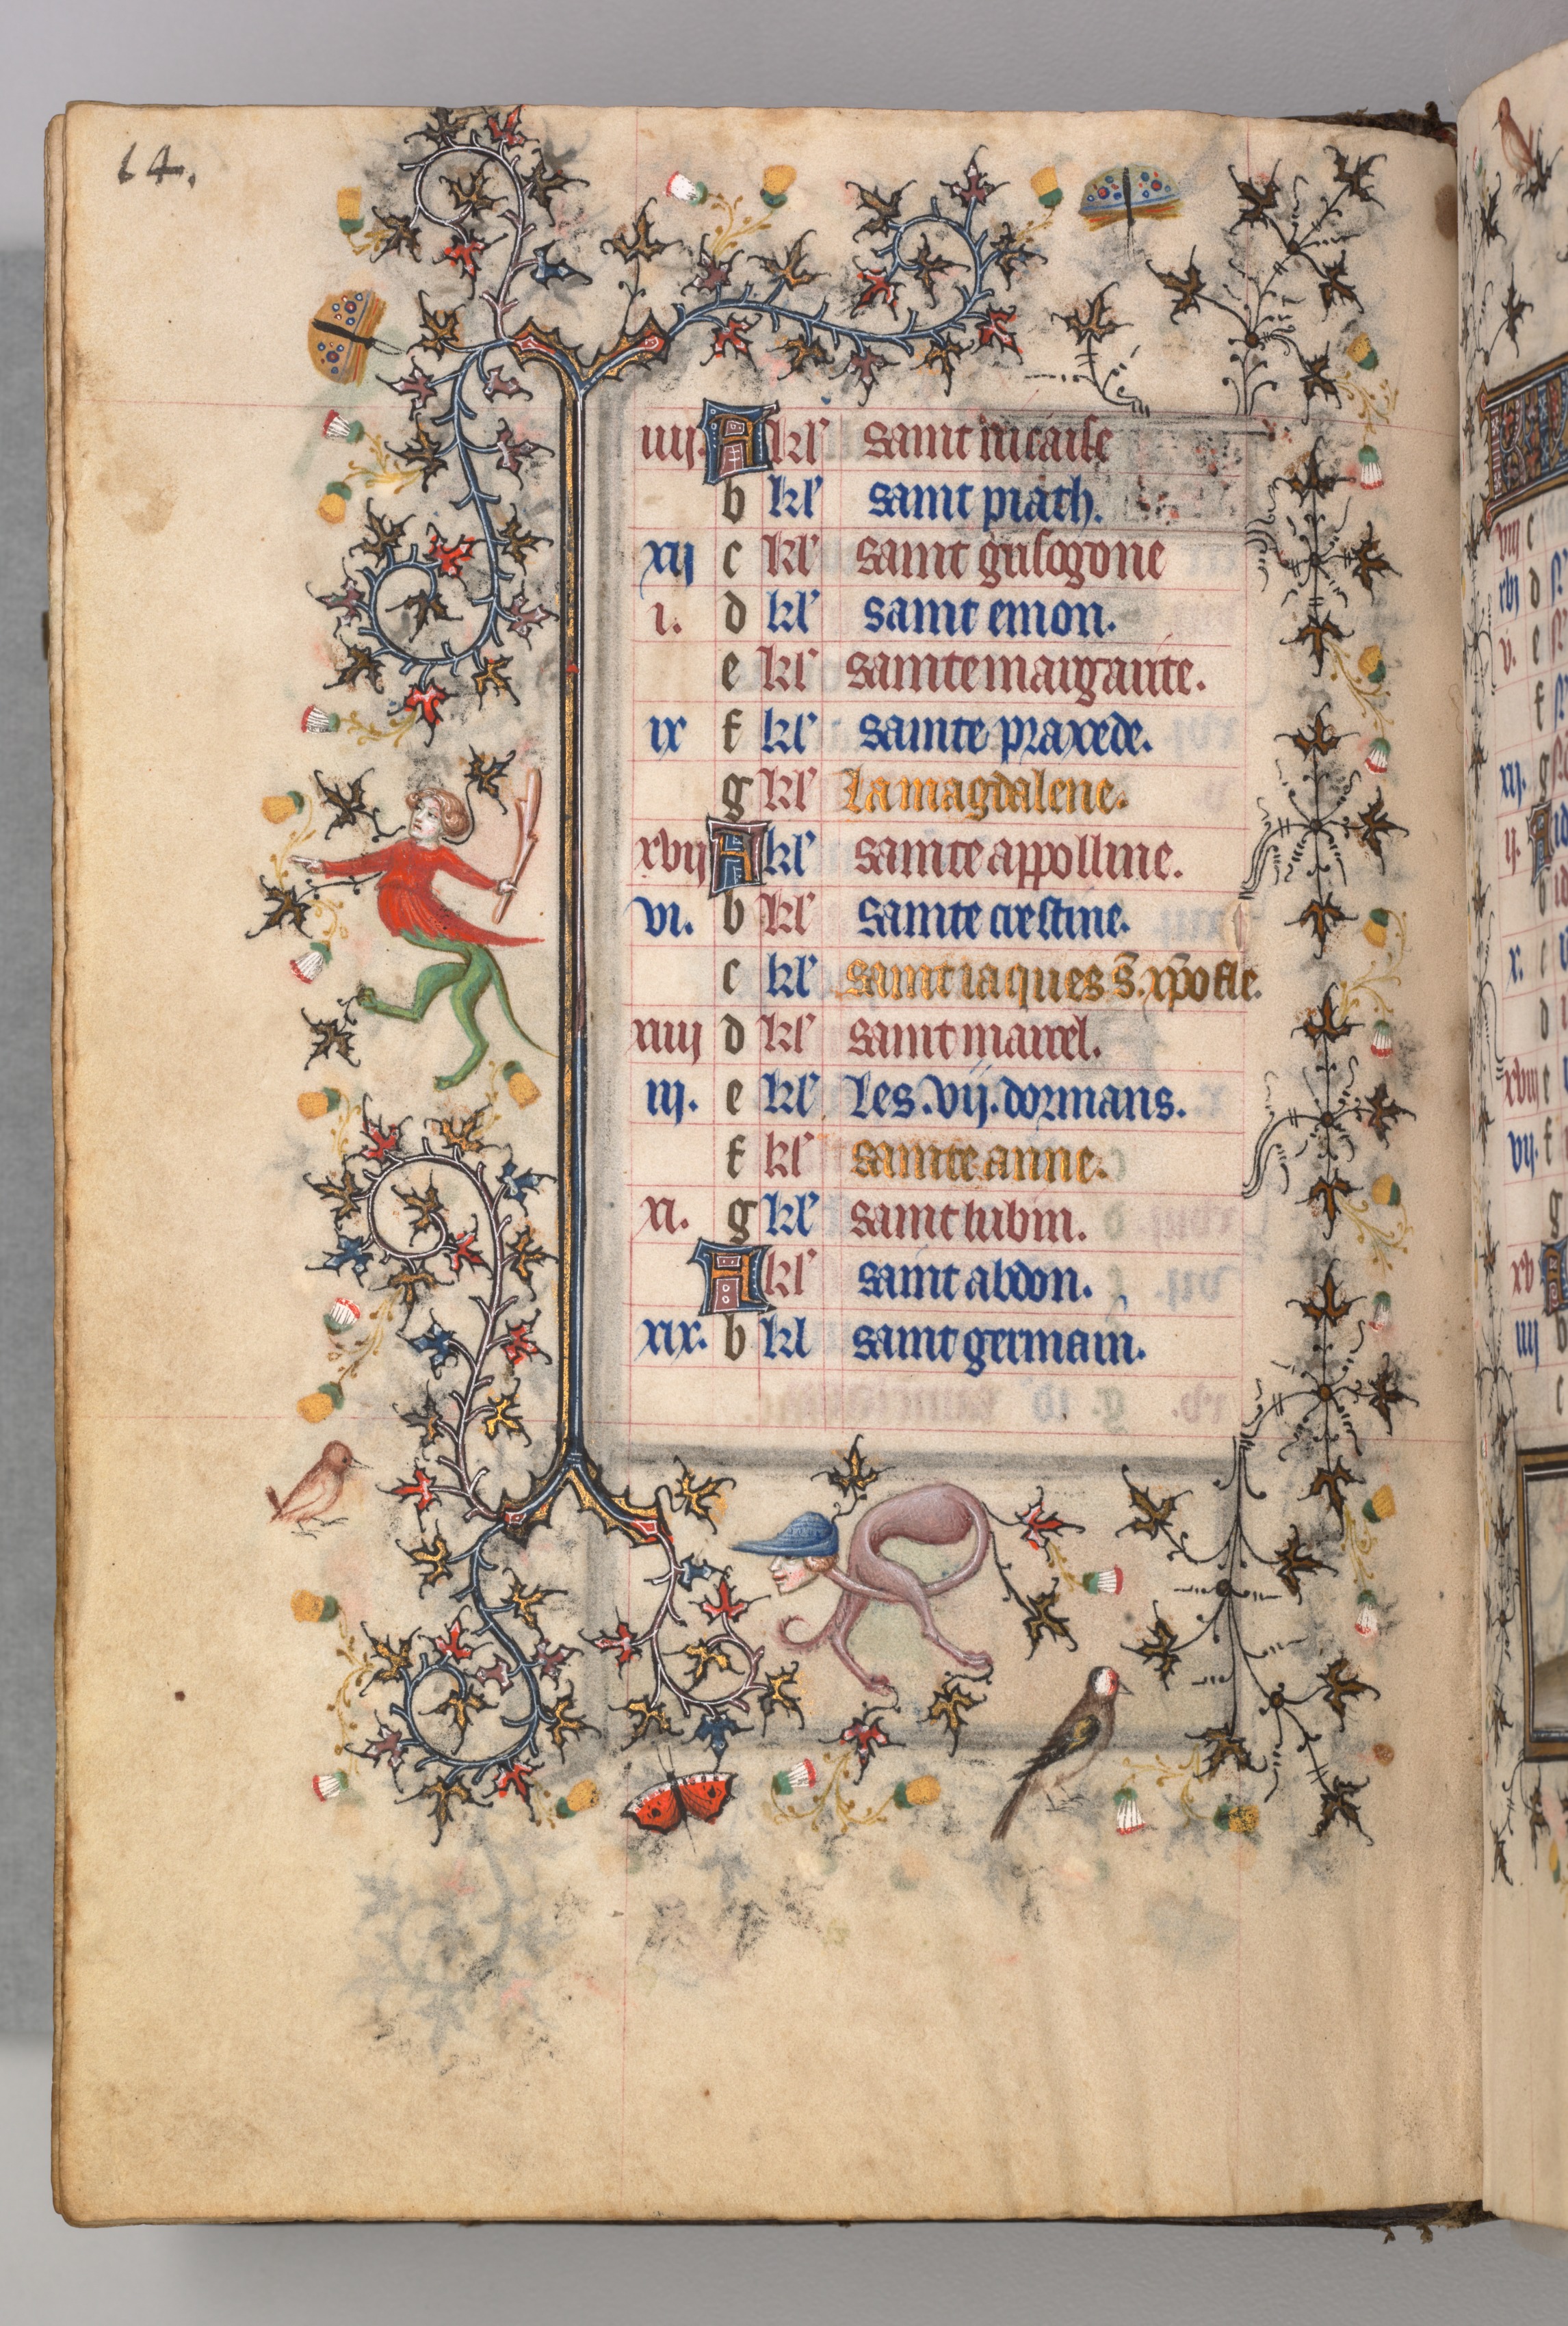 14.
iiij. A kl' saint nicaise
b kl' saint piath.
xij c kl' saint grisogone
i. d kl' saint emon.
e kl' sainte margarite.
ix f kl' sainte praxede.
g kl' La magdalene.
xvij A kl' sainte appolline.
vi. b kl' sainte crestine.
c kl' saint iaques s. xpofle.
xiiij d kl' saint marcel.
iij. e kl' Les .vij. dormans.
f kl' sainte anne.
xi. g kl' saint lubin.
A kl' saint abdon.
xix. b kl saint germain.